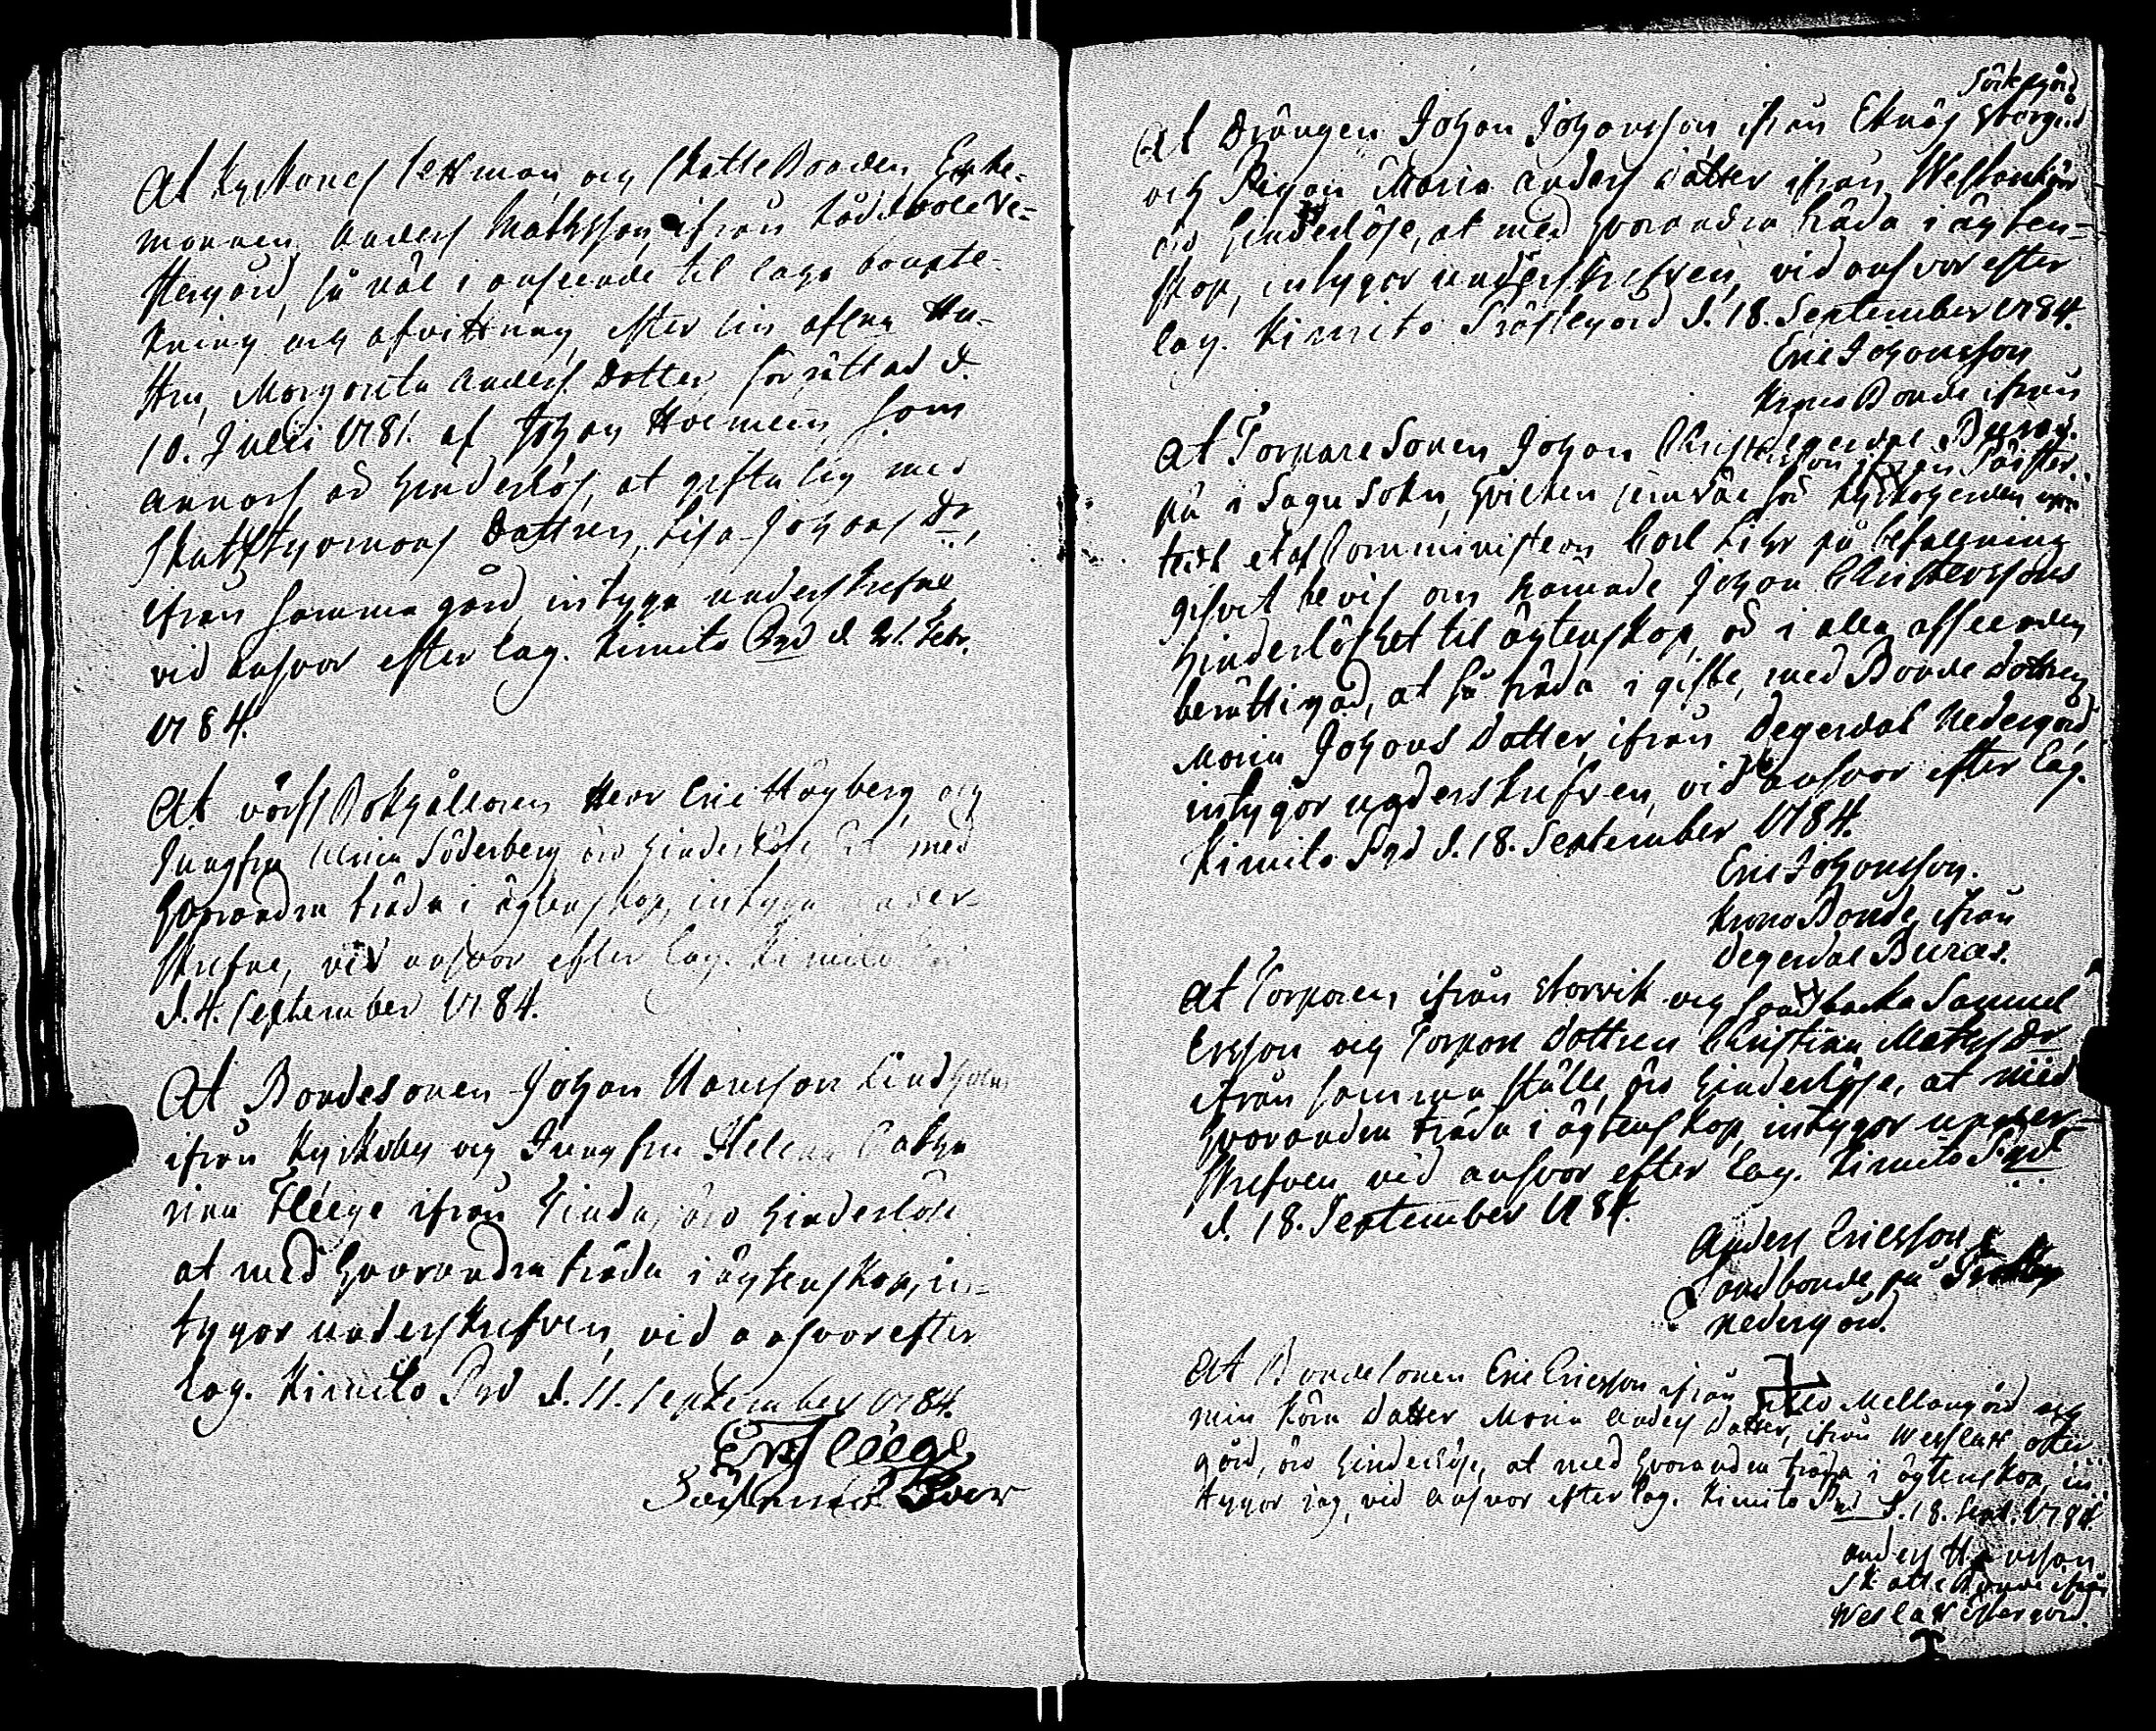 At Kyrkones Sexman och SkatteBonden Enke-
mannen, Anders Mathsson, ifrån
stergård, så väl i anseende til laga boupte-
kning och afvittring, efter sin aflna Hu-
stru, Margareta Anders Dotter, förrättad d.
10. Julii 1781. af Johan som
annars är hinderlös, at gifta sig med
Dottren, Lisa Johans Dr,
ifrån samma gård, intyga underskrefne
vid answar efter lag. Kimito Pgd d. 21. Febr.
1784.
At Bokhållaren Herr Eric Högberg, och
Jungfru Ulrica Söderberg äro hinderlöse at med
hvarandra träda i ägtenskap, intyga under-
skrefne, vid answar efter lag. Kimito
d. 4. September 1784.
At Bondesonen Johan Hansson Lindholm
ifrån Kyrkoby och Jungfru Helena Catha
rina Fleege ifrån äro hinderlöse
at med hvarandra träda i ägtenskap, in-
tygar underskrefven, vid answar efter
lag. Kimito Pgd d. 11. September 1784.
Fleege
Sörkegård
At Drängen Johan Johansson, ifrån Eknäs Storgård
och Pigan Maria Anders Dotter ifrån Westankärr
äro hinderlöse, at med hvarandra träda i ägten-
skap, intygar underskrefven, vid answar efter
lag. Kimito Prästegård d. 18. September 1784.
Eric Johansson
Krono Bonde ifrån
Degerdal Buräs.
At TorpareSonen Johan Christersson ifrån
på i Sagu Sokn, hvilken jemvälför Kyrkoherden upp
tedt et af Comministern Carl Lihr på befallning
gifvit bevis om nämnde Johan Christerssons
hinderlöshet til ägtenskap, är i alla afseenden
berättigad, at få träda i gifte, med Bonde dottren
Maria Johans Dotter, ifrån Degerdal Nedergård,
intygar underskrefven, vid answar efter lag.
Kimito Pgd d. 18. September 1784.
Eric Johansson.
Krono Bonde, ifrån
Degerdal Buräs.
At Torparen ifrån Storvik och Sandbacka Samuel
Ersson och Torpare dottren Christina Mats Dr
ifrån samma ställe, äro hinderlöse, at med
hvarandra träda i ägtenskap, intygar under-
skrefven vid answar efter lag. Kimito Pgd
d. 18. September 1784.
Anders Ericsson
Landbonde på
Nedergård.
At Bondesonen Eric Ericsson ifrån Mellangård och
min kära Dotter Maria Anders Dotter, ifrån Westlax Öster
gård, äro hinderlöse, at med hvarandra träda i ägtenskap, in
tygar jag, vid answar efter lag. Kimito Pgd d. 18. Sept. 1784.
Anders Hansson
SkatteBonde ifrån
Westlax Östergård.